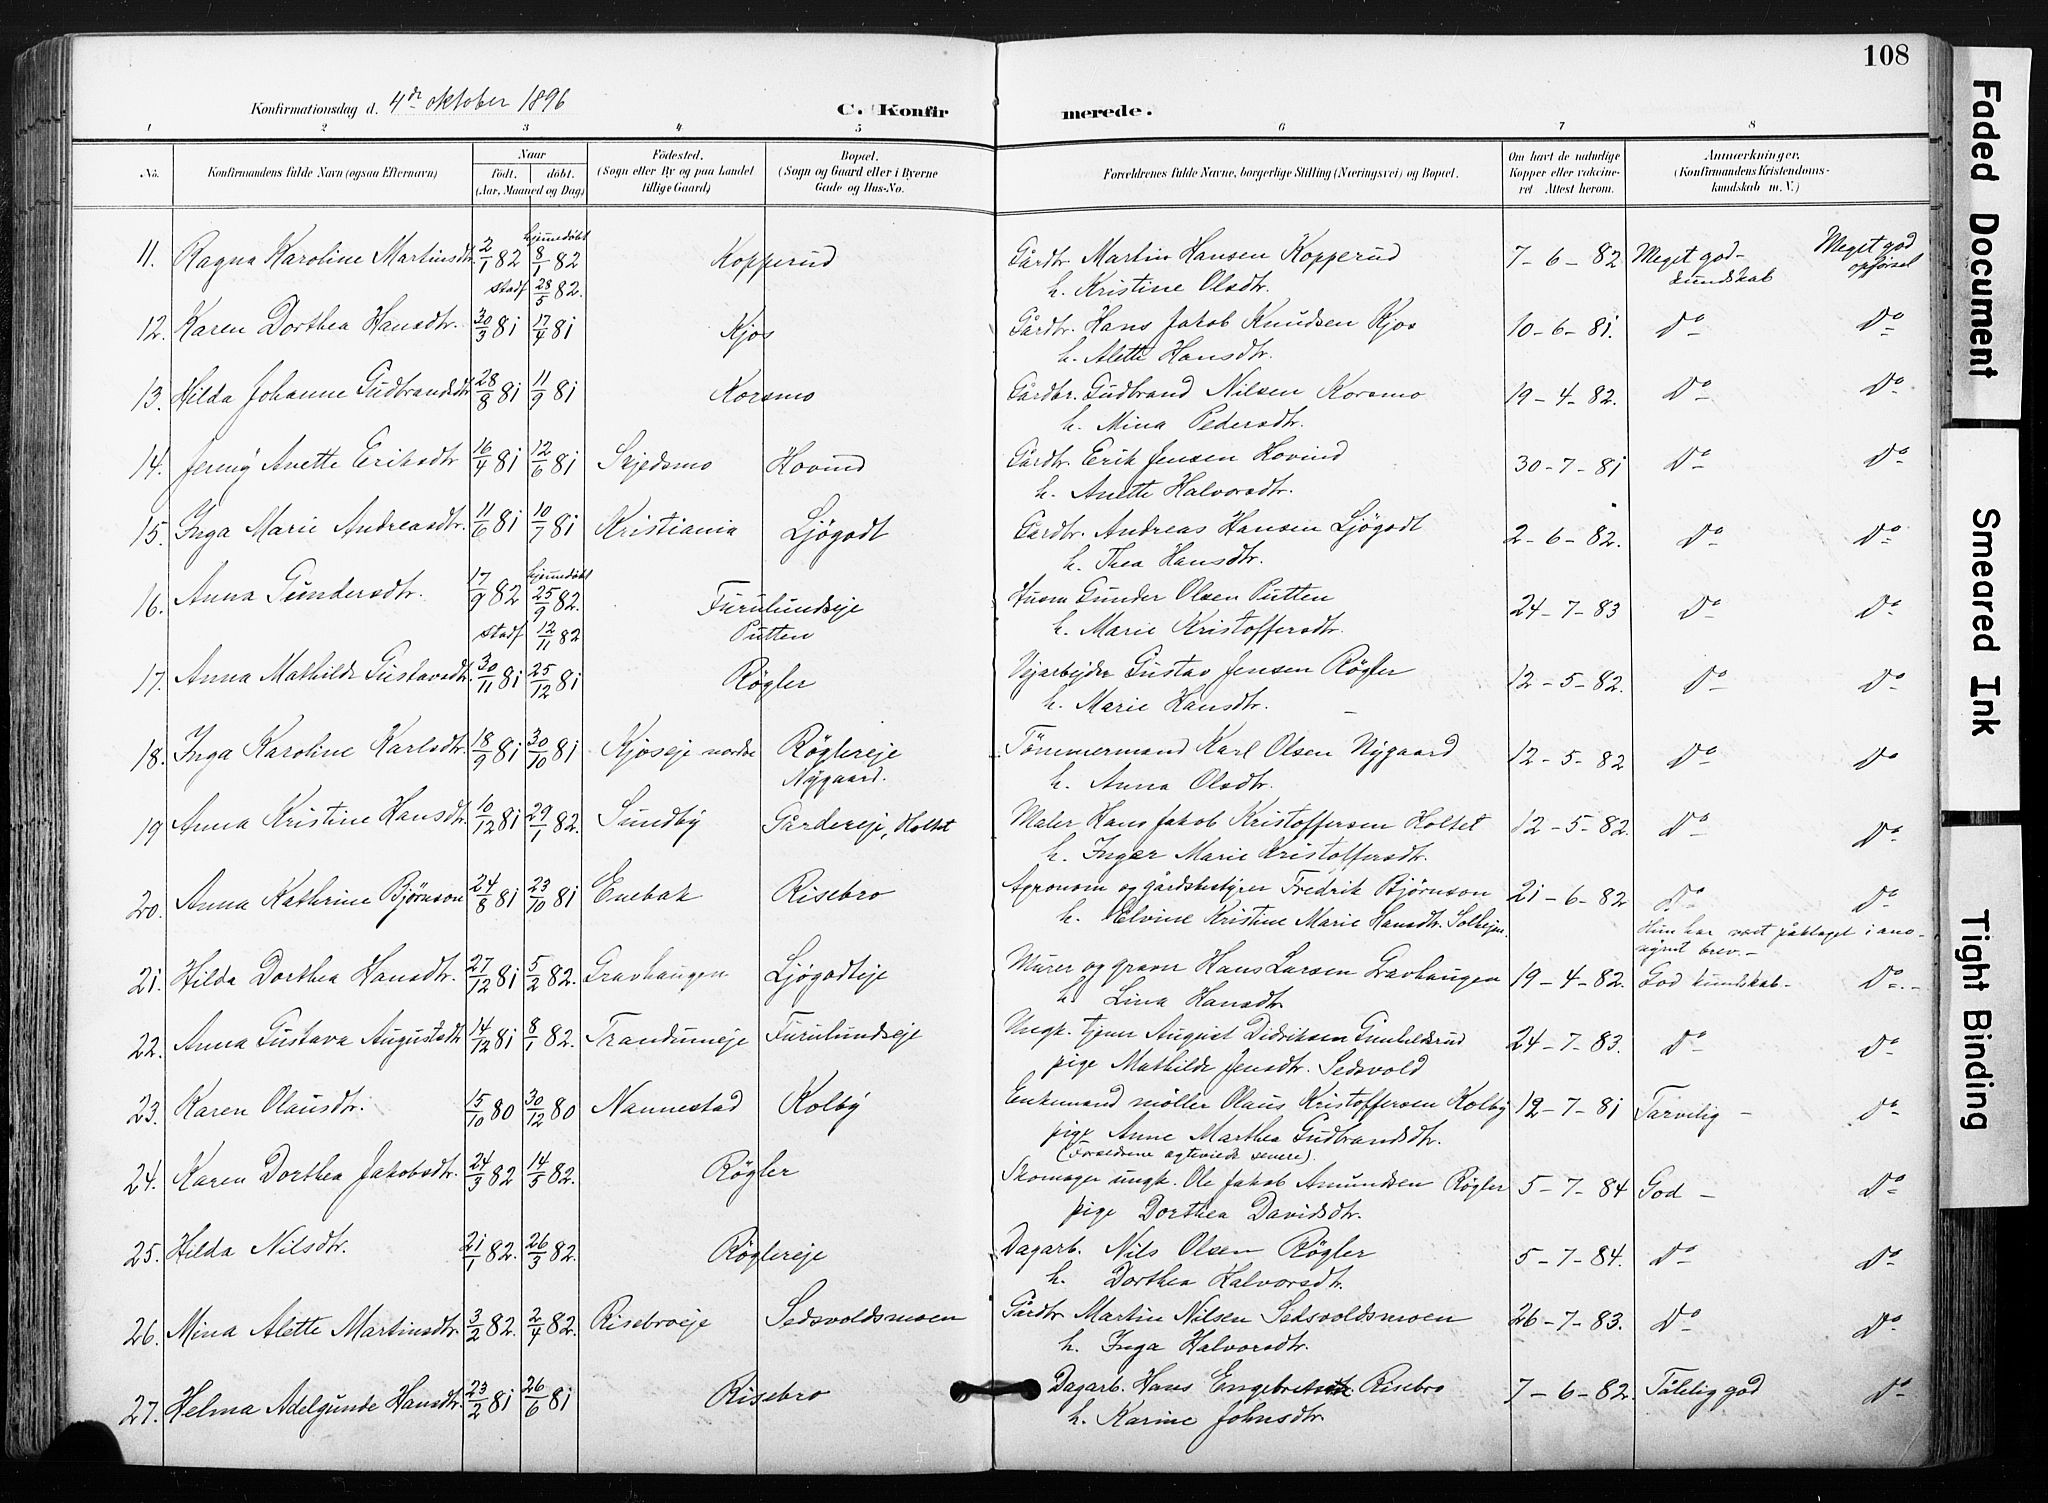 108
Konfirmationsdag d. 4de oktober 1896
C. Konfirmerede.
1 2 3 4 5 6 7 8
No. Konfirmandens fulde Navn (ogsaa Efternavn) Naar født. døbt. (Aar, Maaned og Dag) Fødested. (Sogn eller By og paa Landet tillige Gaard) Bopæl. (Sogn og Gaard eller i Byerne Gade og Hus-No. Forældrenes fulde Navne, borgerlige Stilling (Næringsvei) og Bopæl. Om havt de naturlige Kopper eller vakcineret Attest herom. Anmærkninger. (Konfirmandens Kristendomskundskab m. V.)
11. Ragna Karoline Martinsdtr. 2/1 82 hjemmedøbt 8/1 82 stadf 28/5 82. Kopperud Gårdbr. Martin Hansen Kopperud 7-6-82 Meget god kundskab Meget god opførsel
h. Kristine Olsdtr.
12. Karen Dorthea Hansdtr. 30/3 81 17/4 81 Kjos Gårdbr. Hans Jakob Knudsen Kjos 10-6-81. Do Do
h. Alette Hansdtr.
13. Hilda Johanne Gudbrandsdtr 28/8 81 11/9 81 Korsmo Gårdbr. Gudbrand Nilsen Korsmo 19-4-82. Do Do
h. Mina Pedersdtr.
14. Jenny Anette Eriksdtr 16/4 81 12/6 81 Skjedsmo Hovind Gårdbr. Erik Jensen Hovind 30-7-81 Do Do
h. Anette Halvorsdtr.
15. Inga Marie Andreasdtr. 11/6 81 10/7 81 Kristiania Ljøgodt Gårdbr. Andreas Hansen Ljøgodt 2-6-82. Do Do
h. Thea Hansdtr.
16. Anna Gundersdtr. 17/9 82 hjemmedøbt 25/9 82. stadf 12/11 82 Furulundseje Putten Husm Gunder Olsen Putten 24-7-83 Do Do
h. Marie Kristoffersdtr.
17. Anna Mathilde Gustavsdtr. 30/11 81 25/12 81 Røgler Vejarbejder Gustav Jensen Røgler 12-5-82. Do Do
h. Marie Hansdtr.
18. Inga Karoline Karlsdtr. 18/9 81 30/10 81 Kjoseje nordre Røglereje Nygaard. Tømmermand Karl Olsen Nygaard 12-5-82 Do Do
h. Anna Olsdtr.
19. Anna Kristine Hansdtr. 10/12 81 29/1 82. Sundby Gårdereje, Holtet Maler Hans Jakob Kristoffersen Holtet 12-5-82. Do Do
h. Inger Marie Kristoffersdtr.
20. Anna Kathrine Bjørnson 24/8 81 23/10 81 Enebak Risebro Agronom og gårdsbestyrer Fredrik Bjørnson 21-6-82 Do Do
h. Elvine Kristine Marie Hansdtr. Solhejm. Hun har været påklaget i anonymt brev.-
21. Hilda Dorthea Hansdtr. 27/12 81 5/2 82. Gravhaugen Ljøgodteje Murer og graver Hans Larsen Gravhaugen 19-4-82. God kundskab- Do
h. Lina Hansdtr
22. Anna Gustava Augustsdtr 14/12 81 8/1 82. Trandumeje Furulundseje Ungk. tjener August Didriksen Gunhildsrud 24-7-83. Do Do
pige Mathilde Jensdtr. Sedsvold
23. Karen Olausdtr. 15/10 80 30/12 80 Nannestad Kolby Enkemand møller Olaus Kristoffersen Kolby 12-7-81 Tarvelig - Do
pige Anne Marthea Gudbrandsdtr.
(Forældrene ægteviede senere).
24. Karen Dorthea Jakobsdtr. 24/3 82 14/5 82. Røgler Skomager ungk. Ole Jakob Amundsen Røgler 5-7-84 God - Do
pige Dorthea Davidsdtr.
25. Hilda Nilsdtr. 21/1 82. 26/3 82. Røglereje Dagarb. Nils Olsen Røgler 5-7-84. Do Do
h. Dorthea Halvorsdtr.
26. Mina Alette Martinsdtr. 3/2 82. 2/4 82. Risebroeje Sedsvoldsmoen Gårdbr Martin Nilsen Sedsvoldsmoen 26-7-83. Do Do
h. Inga Halvorsdtr.
27. Helma Adelgunde Hansdtr. 23/2 81 26/6 81 Risebro Dagarb. Hans Engebretsen Risebro 7-6-82. Tålelig god Do
h. Karine Johnsdtr.
Faded Document
Smeared Ink
Tight Binding